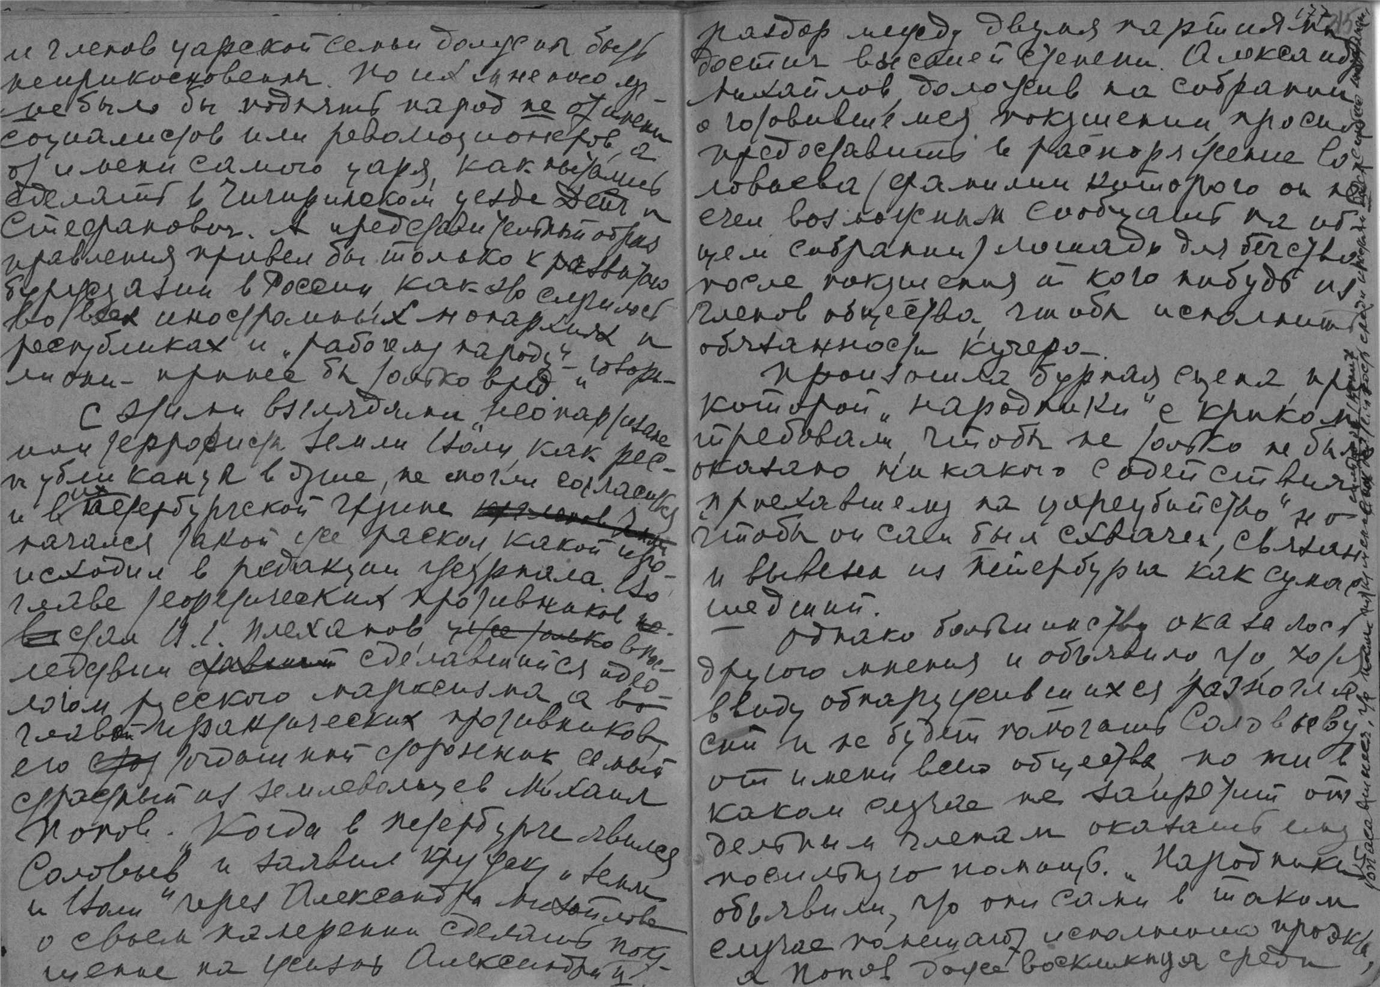 и членов царской семьи должны быть
неприкосновенны. По их мнению нуж-
но было бы поднять народ не от имени
социалистов или революционеров, а
от имени самого царя, как пытались
сделать в Чигиринском уезде Дейч и
Стефанович. А представительный образ
правления привел бы только к развитию
буржуазии в России, как это случилось
во всех иностранных монархиях и
республиках и „рабочему народу" – говори-
ли они – принес бы только вред."
С этими взглядами неопартизане
или террористы Земли и Воли, как рес-
публиканцы в душе, не могли согласиться
и в их Петербургской группе
начался такой же раскол, какой про-
исходил в редакции журнала. Во
главе теоретических противников
встал Г. В. Плеханов, впос-
ледствии сделавшийся идео-
логом русского марксизма, а во
главе практических противников
его тогдашний сторонник, самый
страстный из землевольцев Михаил
Попов. Когда в Петербурге явился
Соловьев и заявил кружку „Земли
и Воли" через Александра Михайлова
о своем намерении сделать поку-
шение на жизнь Александра II,
раздор между двумя партиями
достиг высшей степени. Александр
Михайлов, доложив на собрании
о готовившемся покушении, просил
предоставить в распоряжение Со-
ловьева (фамилии которого он не
счел возможным сообщить на об-
щем собрании) лошадь для бегства
после покушения и кого нибудь из
членов общества, чтобы исполнить
обязанности кучера.
Произошла бурная сцена, при
которой „народники" с криком
требовали, чтобы не только не было
оказано никакого содействия
„приехавшему на цареубийство", но
чтобы он сам был схвачен, связан
и вывезен из Петербурга как сумас-
шедший.
Однако большинство оказалось
другого мнения и объявило, что хотя
ввиду обнаружившихся разногла-
сий и не будет помогать Соловьеву
от имени всего общества, но ни в
каком случае не запретит от-
дельным членам оказать ему
посильную помощь. „Народники"
объявили, что они сами в таком
случае помешают исполнению проэкта,
а Попов даже воскликнул среди